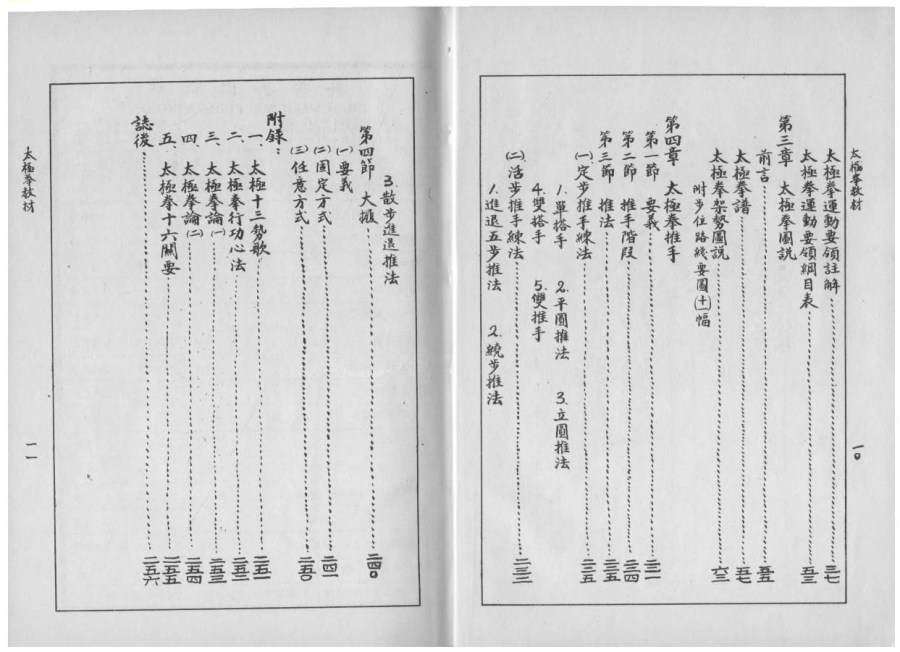 太極拳教材
一〇
太極拳運動要領註解 三七
太極拳運動要領綱目表 五三
第三章 太極拳圖說
前言 五五
太極拳譜 五七
太極拳架勢圖說 六三
附步位路綫要圖(十一)幅
第四章 太極拳推手
第一節 要義
第二節 推手階段
第三節 推法
(一)定步推手練法
1.單搭手 2.平圓推法 3.立圓推法
4.雙搭手 5.雙推手
(二)活步推手練法
1.進退五步推法 2.繞步推法
3.散步進退推法
第四節 大攦 二四〇
(一)要義
(二)固定方式 二四一
(三)任意方式 二五〇
附錄：
一、太極十三勢歌 二五一
二、太極拳行功心法 二五二
三、太極拳論(一) 二五三
四、太極拳論(二) 二五四
五、太極拳十六關要 二五五
誌後 二五六
太極拳教材
一一